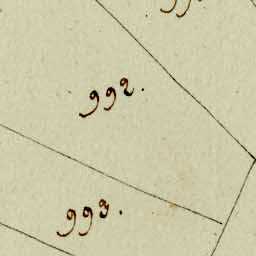 992.
993.